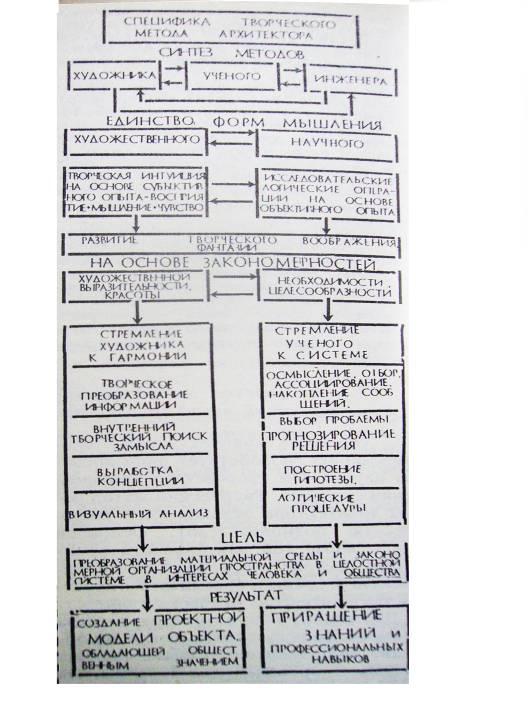 СПЕЦИФИКА ТВОРЧЕСКОГО
МЕТОДА АРХИТЕКТОРА
СИНТЕЗ МЕТОДОВ
ХУДОЖНИКА
УЧЕНОГО
ИНЖЕНЕРА
ЕДИНСТВО ФОРМ МЫШЛЕНИЯ
ХУДОЖЕСТВЕННОГО
НАУЧНОГО
ТВОРЧЕСКАЯ ИНТУИЦИЯ
НА ОСНОВЕ СУБЪЕКТИВ
НОГО ОПЫТА-ВОСПРИЯ
ТИЕ·МЫШЛЕНИЕ·ЧУВСТВО
ИССЛЕДОВАТЕЛЬСКИЕ
ЛОГИЧЕСКИЕ ОПЕРА
ЦИИ НА ОСНОВЕ
ОБЪЕКТИВНОГО ОПЫТА
РАЗВИТИЕ ТВОРЧЕСКОГО ВООБРАЖЕНИЯ
ФАНТАЗИИ
НА ОСНОВЕ ЗАКОНОМЕРНОСТЕЙ
ХУДОЖЕСТВЕННОЙ
ВЫРАЗИТЕЛЬНОСТИ,
КРАСОТЫ
НЕОБХОДИМОСТИ,
ЦЕЛЕСООБРАЗНОСТИ
СТРЕМЛЕНИЕ
ХУДОЖНИКА
К ГАРМОНИИ
ТВОРЧЕСКОЕ
ПРЕОБРАЗОВАНИЕ
ИНФОРМАЦИИ
ВНУТРЕННИЙ
ТВОРЧЕСКИЙ ПОИСК
ЗАМЫСЛА
ВЫРАБОТКА
КОНЦЕПЦИИ
ВИЗУАЛЬНЫЙ АНАЛИЗ
СТРЕМЛЕНИЕ
УЧЕНОГО
К СИСТЕМЕ
ОСМЫСЛЕНИЕ, ОТБОР,
АССОЦИИРОВАНИЕ,
НАКОПЛЕНИЕ СООБ
ЩЕНИЙ.
ВЫБОР ПРОБЛЕМЫ
ПРОГНОЗИРОВАНИЕ
РЕШЕНИЯ
ПОСТРОЕНИЕ
ГИПОТЕЗЫ.
ЛОГИЧЕСКИЕ
ПРОЦЕДУРЫ
ЦЕЛЬ
ПРЕОБРАЗОВАНИЕ МАТЕРИАЛЬНОЙ СРЕДЫ И ЗАКОНО
МЕРНОЙ ОРГАНИЗАЦИИ ПРОСТРАНСТВА В ЦЕЛОСТНОЙ
СИСТЕМЕ В ИНТЕРЕСАХ ЧЕЛОВЕКА И ОБЩЕСТВА
РЕЗУЛЬТАТ
СОЗДАНИЕ ПРОЕКТНОЙ
МОДЕЛИ ОБЪЕКТА,
ОБЛАДАЮЩЕЙ ОБЩЕСТ
ВЕННЫМ ЗНАЧЕНИЕМ
ПРИРАЩЕНИЕ
ЗНАНИЙ И
ПРОФЕССИОНАЛЬНЫХ
НАВЫКОВ